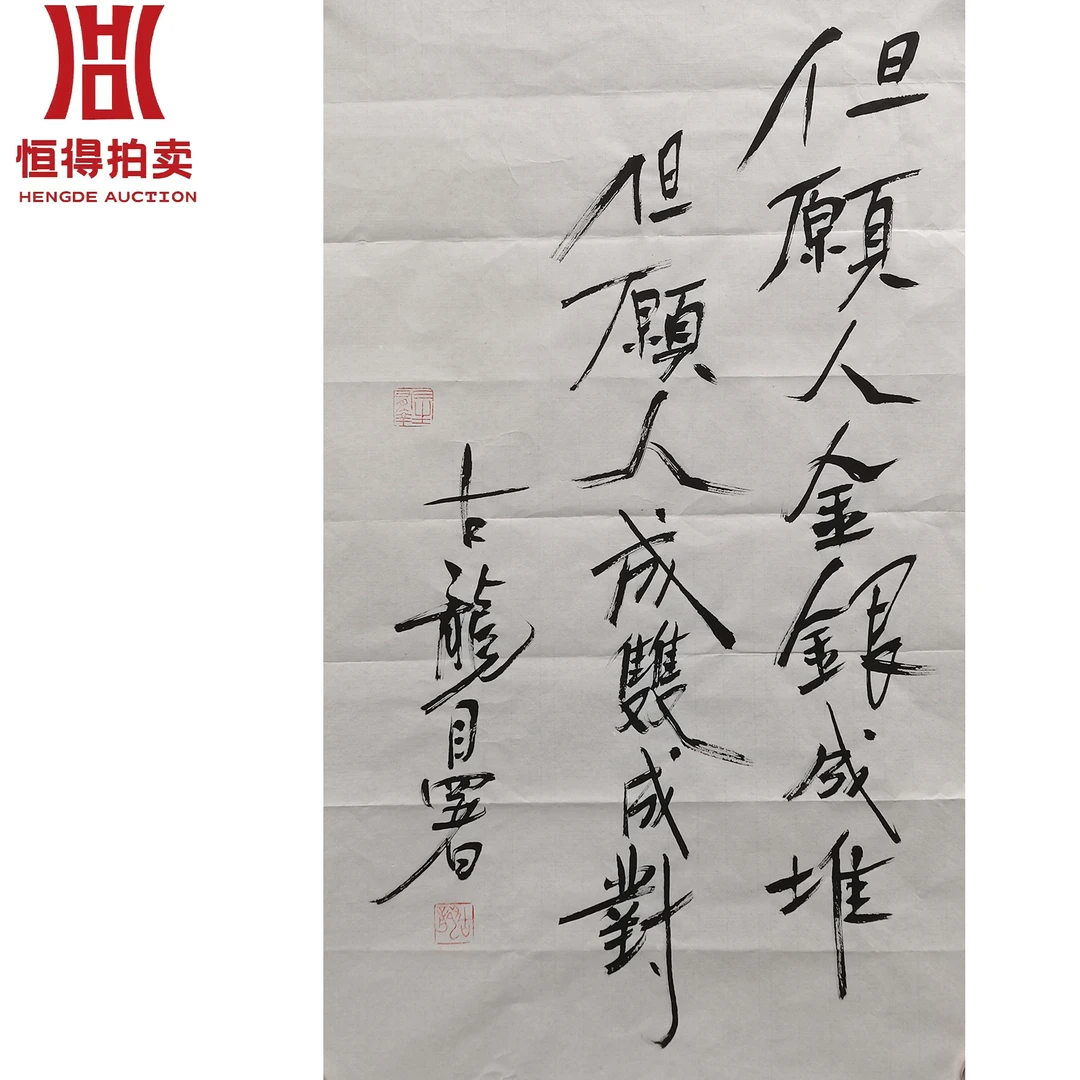 恒得拍卖
HENGDE AUCTION
但願人金銀成堆
但願人成雙成對
古龍自署